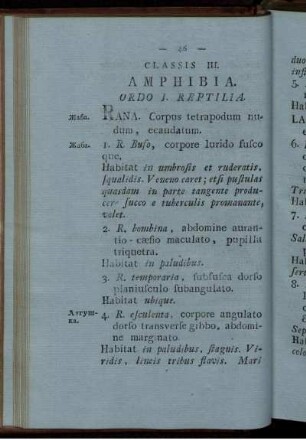 — 26 —
CLASSIS III.
AMPHIBIA.
ORDO I. REPTILIA.
Жаба. RANA. Corpus tetrapodum nu-
dum, ecaudatum.
Жаба. 1. R. Bufo, corpore lurido fusco
que.
Habitat in umbrosis et ruderatis,
squalidis. Veneno caret; etsi pustulas
quasdam in parte tangente produ-
cere succo e tuberculis promanante,
valet.
2. R. bombina, abdomine auran-
tio-cæsio maculato, pupilla
triquetra.
Habitat in paludibus.
3. R. temporaria, subfusca dorso
planiusculo subangulato.
Habitat ubique.
4. R. esculenta, corpore angulato
dorso transverse gibbo, abdomi-
ne marginato.
Habitat in paludibus, stagnis. Vi-
ridis, lineis tribus flavis. Mari